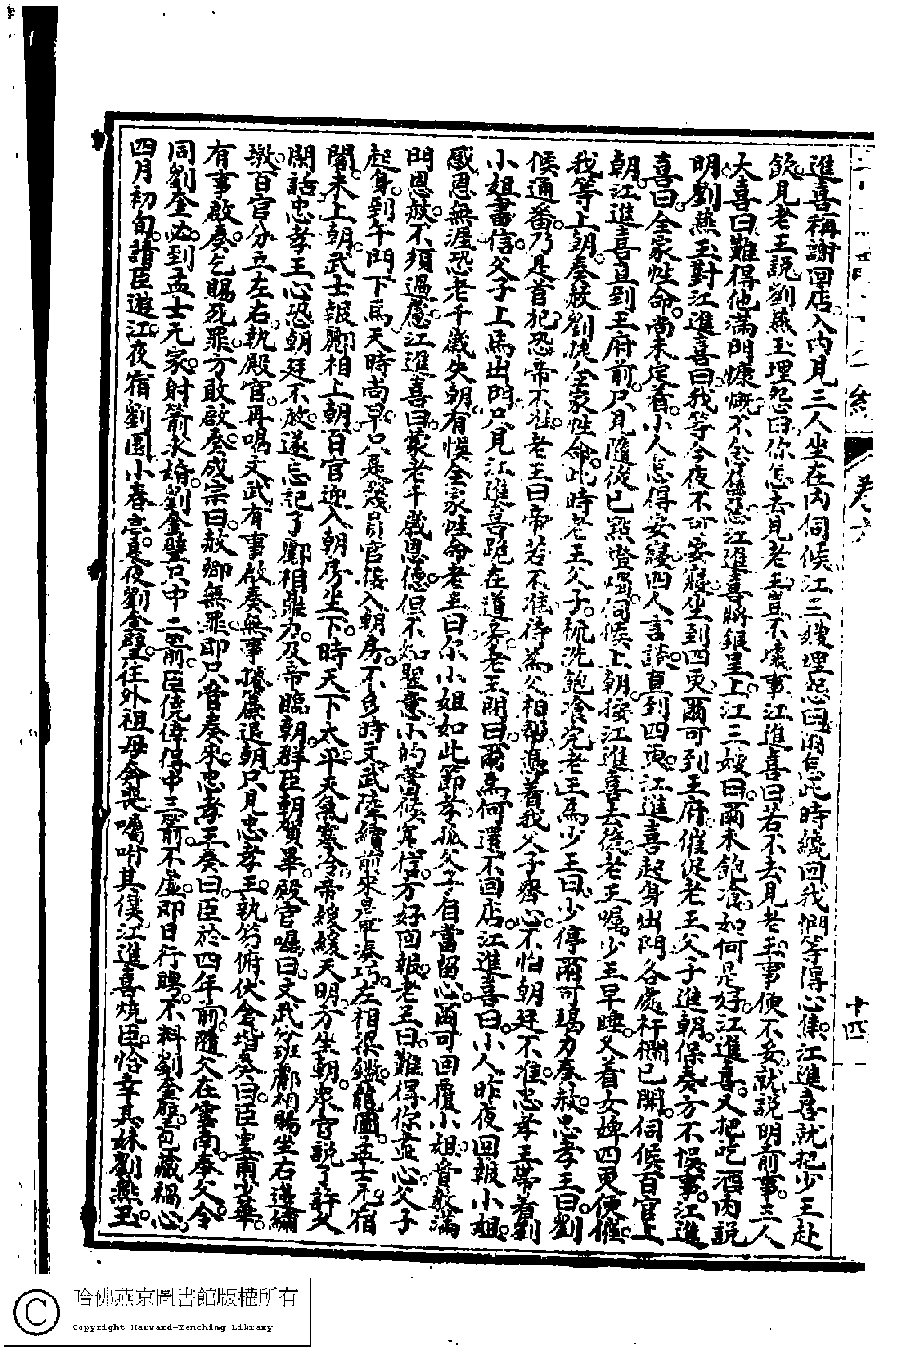 進喜稱謝回店入內見三人坐在內伺候江三嫂埋怨曰為何此時纔回我們等得心焦江進喜就把少王赴
飲見老王說劉燕玉埋怨曰你怎去見老王豈不壞事江進喜曰若不去見老王事便不妥就說明前事三人
大喜曰難得他滿門慷慨不念舊惡江進喜將銀呈上江三嫂曰爾未飽飡如何是好江進喜又把吃酒肉說
明劉燕玉對江進喜曰我等今夜不可安寢坐到四更爾可到王府催促老王父子進朝保奏方不悞事江進
喜曰全家性命尚未定着小人怎得安寢四人言談直到四更江進喜起身出門各處柵欄已開伺候百官上
朝江進喜直到王府前只見隨從已點燈燭伺候上朝按江進喜去後老王囑少王早睡又着女婢四更便催
我等上朝奏赦劉捷全家性命此時老王父子梳洗飽飡完老王為少王曰少停爾可竭力奏赦忠孝王曰劉
候通番乃是首犯恐帝不准老王曰帝若不准待為父相幫憑着我父子齊心不怕朝廷不准忠孝王帶着劉
小姐書信父子上馬出門只見江進喜跪在道旁老王問曰爾為何還不回店江進喜曰小人昨夜回報小姐
感恩無涯恐老千歲失朝有悞全家性命老王曰尔小姐如此節孝孤父子自當留心爾可回覆小姐管教滿
門恩赦不須過慮江進喜曰蒙老千歲恩德但不知聖意小的當候実信方好回報老王曰難得你盡心父子
起身到午門下馬天時尚早只是幾員官陸入朝房不多時文武陸續前來是早湊巧左相梁鑑龍圖孟士元宿
閣未上朝武士報酈相上朝百官迎入朝房坐下時天下太平天氣寒冷帝緩緩天明方坐朝眾官說了許久
閑話忠孝王心恐朝廷不赦遂忘記了酈相鼎力及帝臨朝群臣朝賀畢殿官喝曰文武分班酈相賜坐右邊繡
墩百官分立左右執殿官再喝文武有事啟奏無事捲簾退朝只見忠孝王執笏俯伏金堦奏曰臣皇甫少華
有事啟奏乞賜死罪方敢啟奏成宗曰赦卿無罪即只管奏來忠孝王奏曰臣於四年前隨父在雲南奉父令
同劉奎璧到孟士元家射箭求婚劉奎璧只中二箭臣僥倖得中三箭不虛即日行聘不料劉奎璧包藏禍心
四月初旬請臣遊江夜宿劉園小春亭其夜劉奎璧往外祖母會喪囑咐其僕江進喜燒臣恰幸其妹劉燕玉
卷六
十四
哈佛燕京圖書館版權所有
Copyright Harvard-Yenching Library